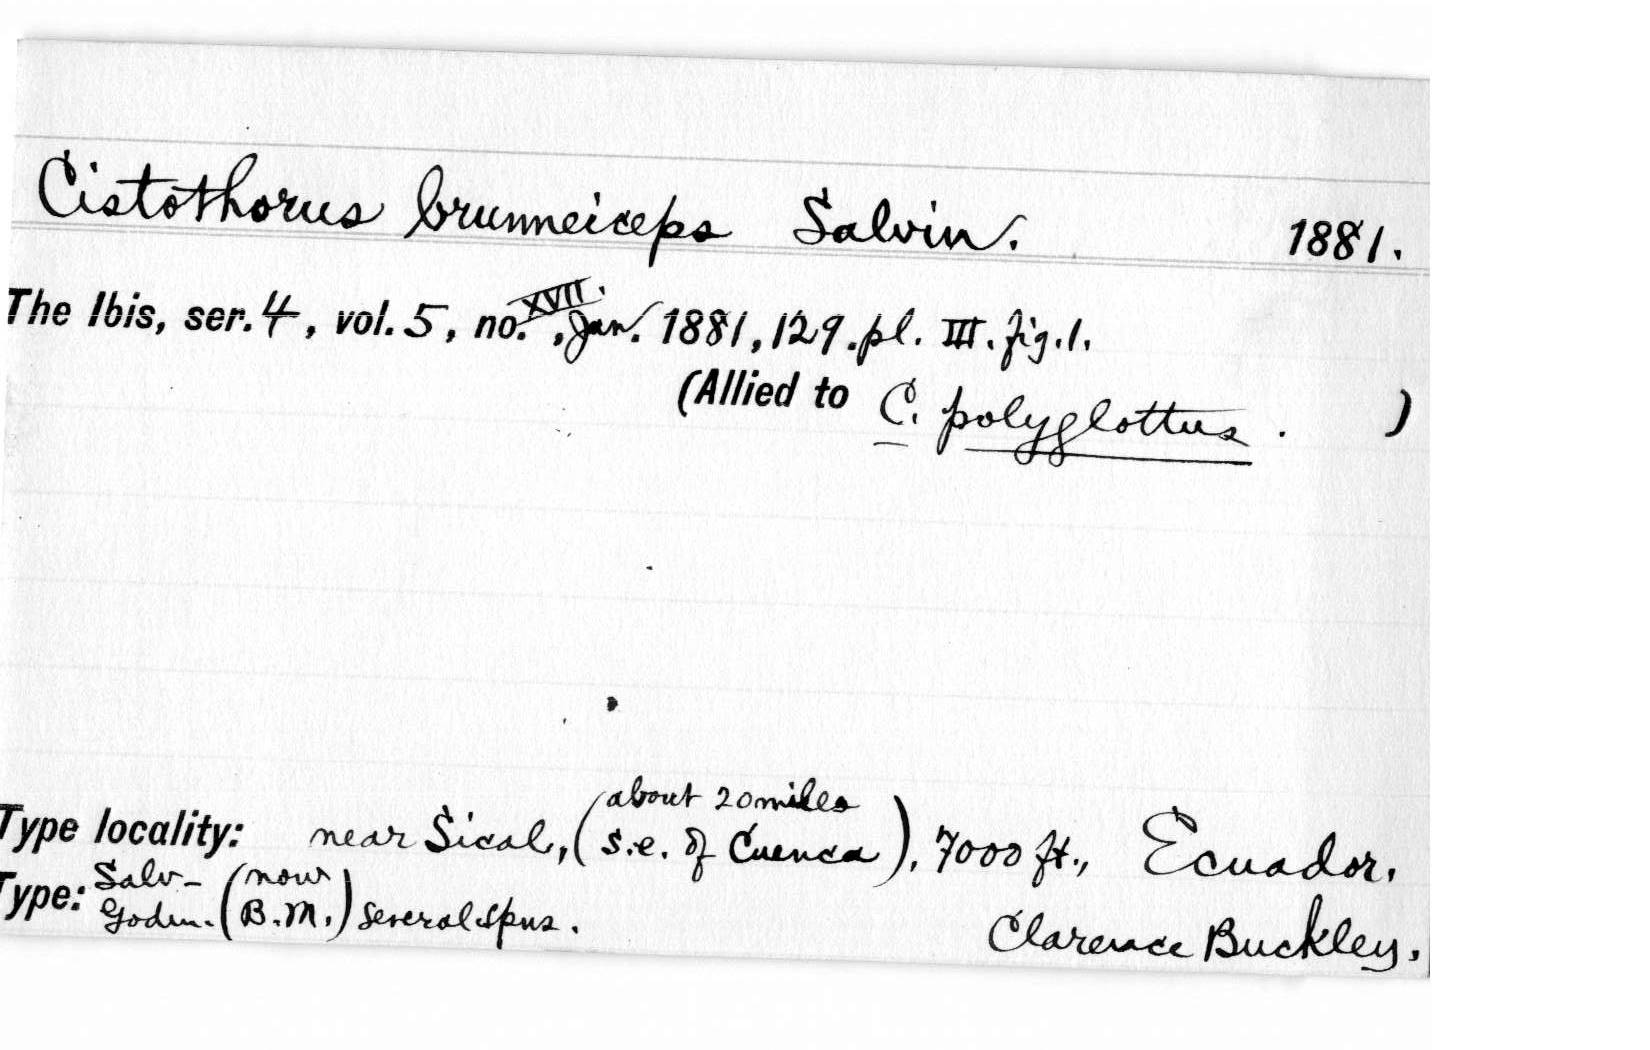 Cistothorus brunneiceps Salvin. 1881.
The Ibis, ser. 4, vol. 5, no. XVII., Jan. 1881, 129. pl. III. fig. 1.
(Allied to C. polyglottus. )
Type locality: near Sical, (about 20 miles s.e. of Cuenca), 7000 ft., Ecuador.
Type: Salv-Godm. (now B.M.) several spns. Clarence Buckley.